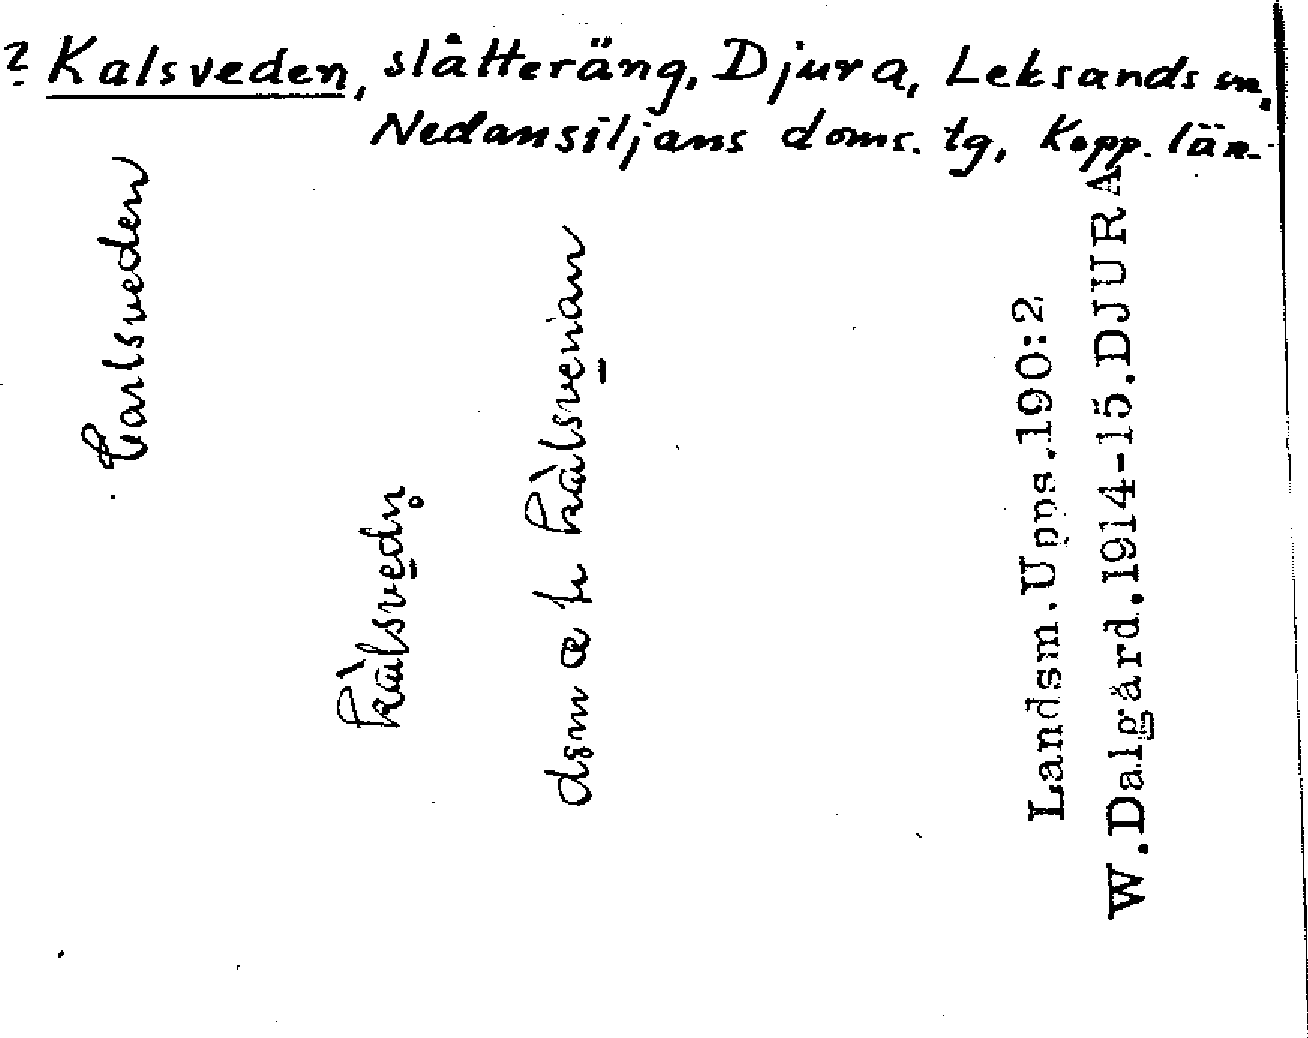 ? Kalsveden, slåtteräng, Djura, Leksands sn.
Nedansiljans doms. tg, Kopp. län.
Carlsveden
kàlsvedn̥
kàlsvenan
Landsm. Upps. 190:2
W. Dalgård. 1914-15. DJURA